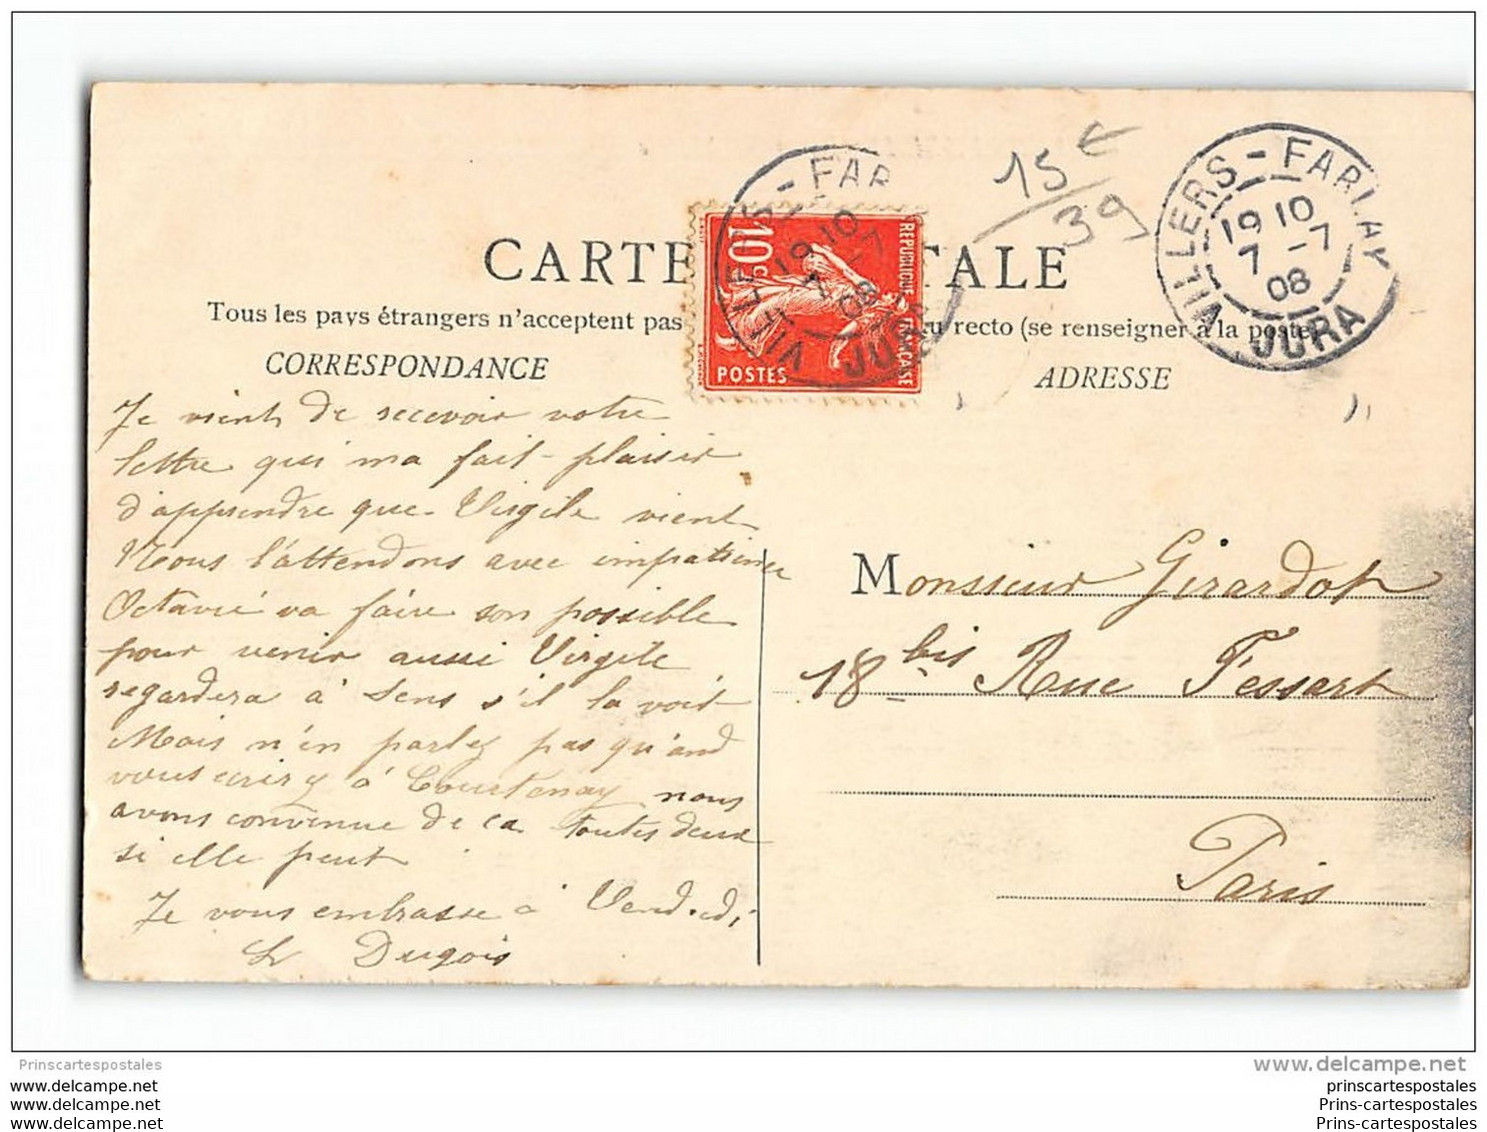 CARTE TALE
Tous les pays étrangers n'acceptent pas u recto (se renseigner à la poste)
CORRESPONDANCE
ADRESSE
VILLERS - FAR
19 10
7 -7
08
JURA
10c
REPUBLIQUE FRANÇAISE
POSTES
15 €
39
VILLERS - FARLAY
19 10
7 -7
08
JURA
Je vient de recevoir votre
lettre qui ma fait plaisir
d'apprendre que Virgile vient
Nous l'attendons avec impatience
Octavie va faire son possible
pour venir aussi Virgile
regardera à Sens s'il la voit
Mais n'en parlez pas qu'and
vous écirez à Courtenay nous
avons convenue de ca toutes deux
si elle peut
Je vous embrasse à Vendredi
Dugois
Monsieur Girardot
18 bis Rue Fessart
Paris
Prinscartespostales
www.delcampe.net
www.delcampe.net
www.delcampe.net
www.delcampe.net
prinscartespostales
Prins-cartespostales
Prins-cartespostales